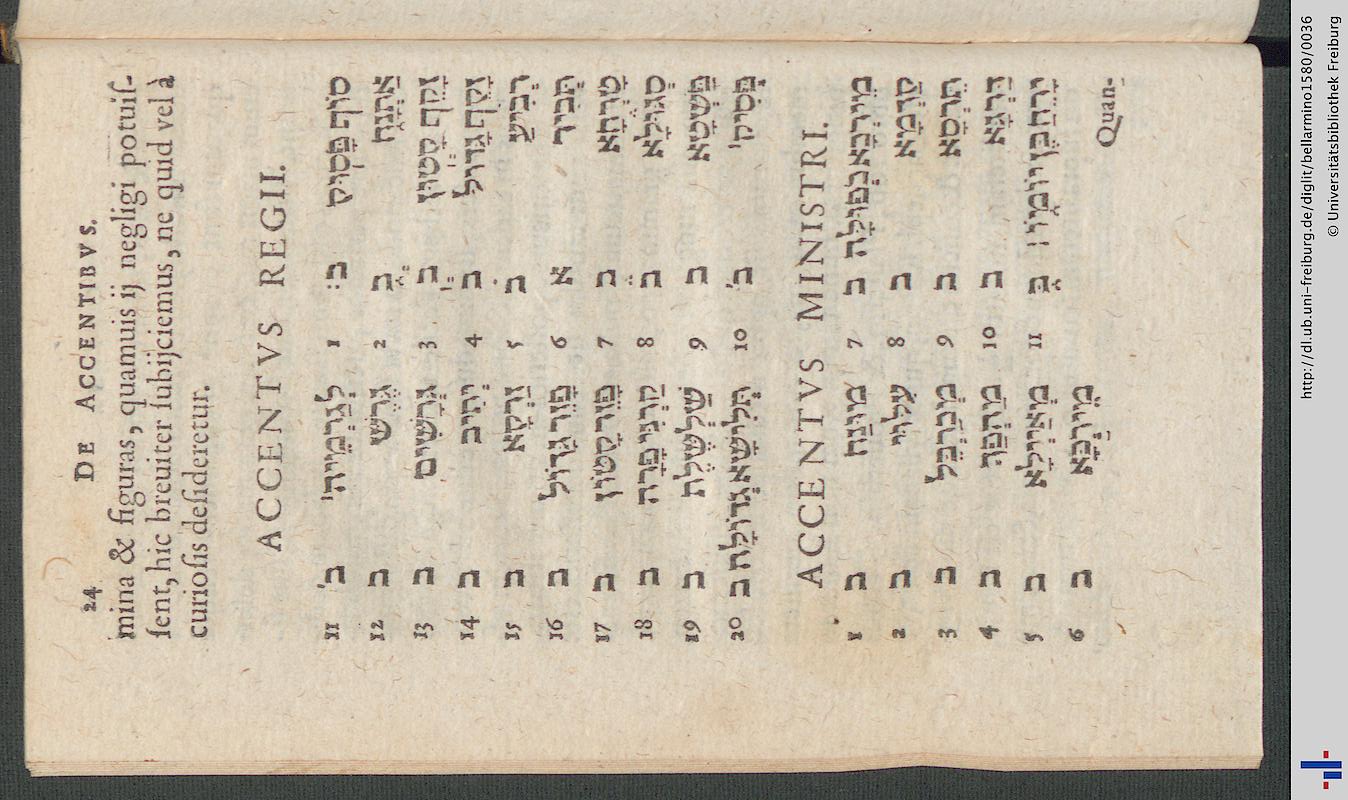 24 DE ACCENTIBVS.
mina & figuras, quamuis ij negligi potuiſ-
ſent, hic breuiter ſubijciemus, ne quid vel à
curioſis deſideretur.
ACCENTVS REGII.
11 ב֓ לְגַרְמֵיהּ 1 ב׃ סוֹף פָּסוּק
12 ב גֶּרֶשׁ 2 ב֑ אַתְנָח
13 ב גֵּרְשַׁיִם 3 ב֔ זָקֵף קָטוּן
14 ב יְתִיב 4 ב֕ זָקֵף גָּדוֹל
15 ב זַרְקָא 5 ב֗ רְבִיעַ
16 ב פָּזֵר גָּדוֹל 6 א תְּבִיר
17 ב פָּזֵר קָטוּן 7 ב טַרְחָא
18 ב קַרְנֵי פָרָה 8 ב֒ סְגוּלָא
19 ב שַׁלְשֶׁלֶת 9 ב פַּשְׁטָא
20 ב תְּלִישָׁא גְדוֹלָה 10 ב֓ פָּסִיק
ACCENTVS MINISTRI.
1 ב מוּנַח 7 ב מֵירְכָא כְפוּלָה
2 ב עִלּוּי 8 ב קַדְמָא
3 ב מְכַרְבֵּל 9 ב תַּרְסָא
4 ב מַהְפַּךְ 10 ב דַּרְגָּא
5 ב מָאיְילָא 11 ב יָרֵחַ בֶּן יוֹמוֹ׃
6 ב מֵירְכָא
Quan-
http://dl.ub.uni-freiburg.de/diglit/bellarmino1580/0036
© Universitätsbibliothek Freiburg